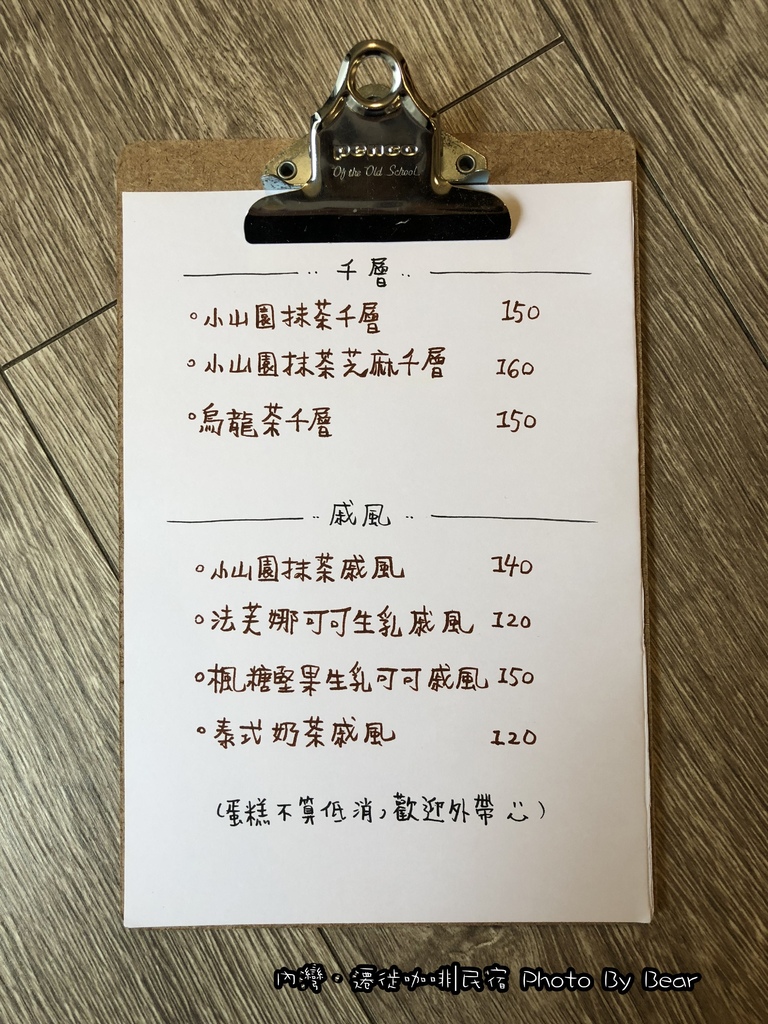 penco
Of the Old School
千層
小山園抹茶千層 150
小山園抹茶芝麻千層 160
烏龍茶千層 150
戚風
小山園抹茶戚風 140
法芙娜可可生乳戚風 120
楓糖堅果生乳可可戚風 150
泰式奶茶戚風 120
(蛋糕不算低消,歡迎外帶 :))
內灣。遷徙咖啡民宿 Photo By Bear